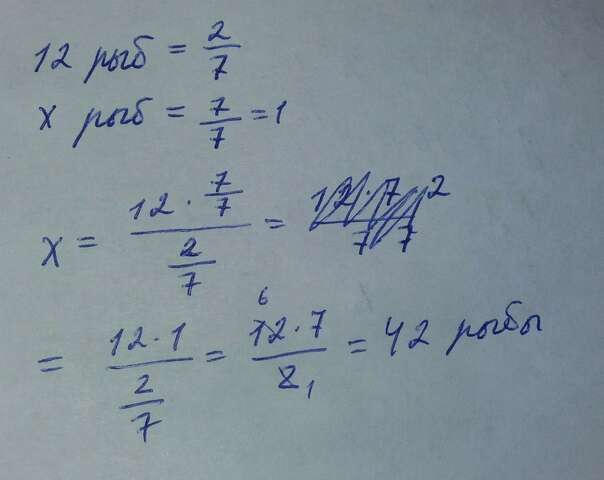 12 рыб = 2/7
x рыб = 7/7 = 1
x = (12 · 7/7) / (2/7) =
= (12 · 1) / (2/7) = (12 · 7) / 2 = 42 рыбы
6
1